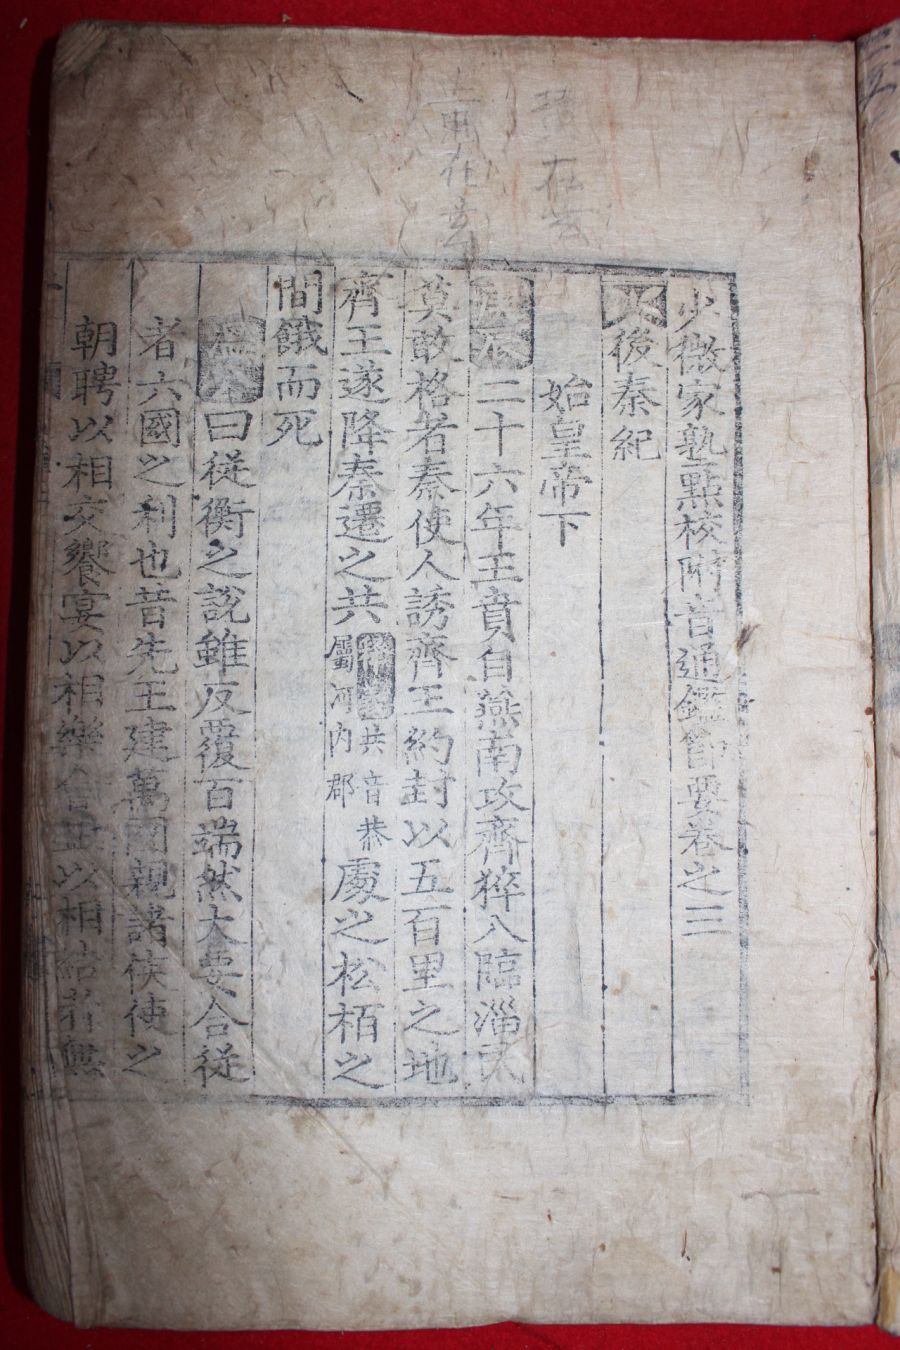 少微家塾點校附音通鑑節要卷之三
後秦紀
始皇帝下
二十六年王賁自燕南攻齊猝入臨淄民
莫敢格者秦使人誘齊王約封以五百里之地
齊王遂降秦遷之共
共音恭
屬河內郡
處之松栢之
間餓而死
曰從衡之說雖反覆百端然大要合從
者六國之利也昔先王建萬國親諸侯使之
朝聘以相交饗宴以相樂會盟以相結者無